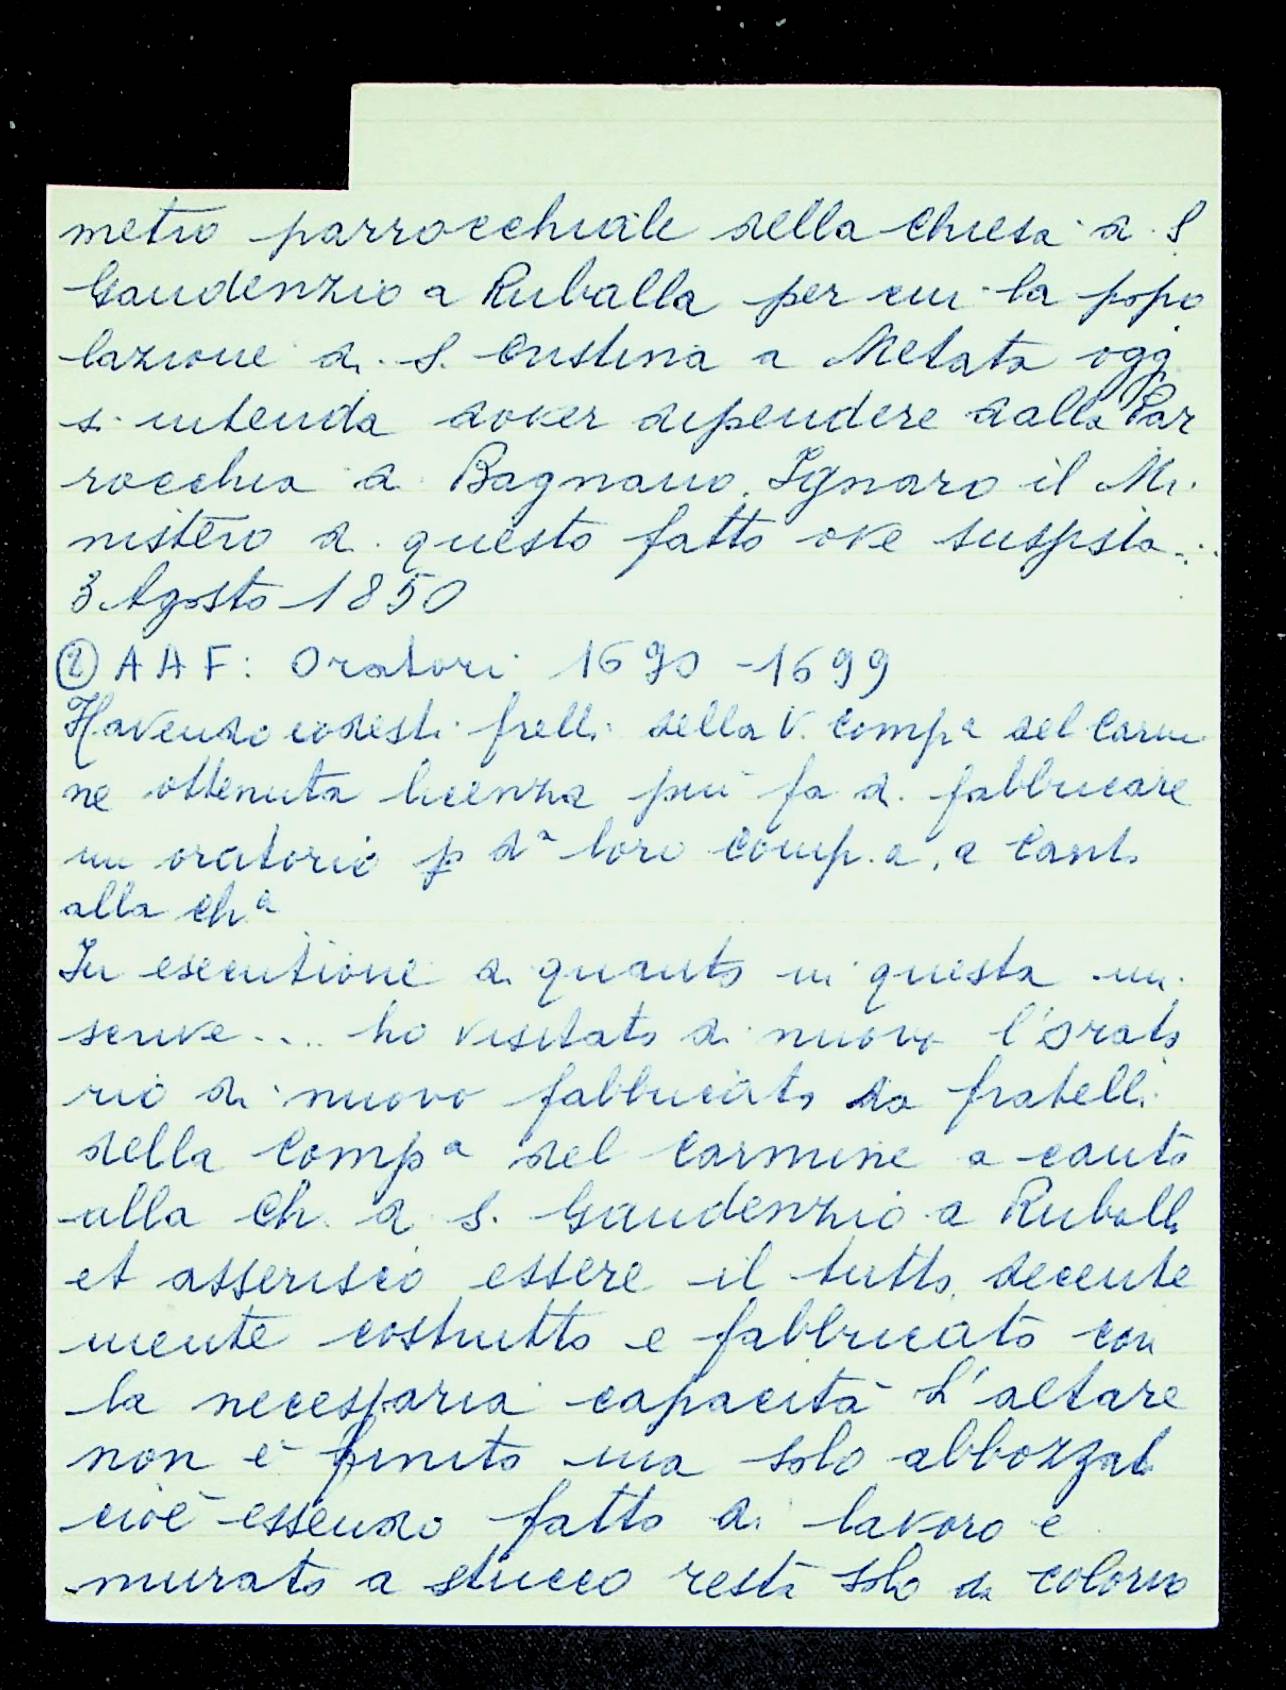 metro parrocchiale della Chiesa di S
Gaudenzio a Ruballa per cui la popo
lazione di S. Cristina a Metata oggi
si intenda dover dipendere dalla Par
rocchia di Bagnano. Ignaro il Mi-
nistero di questo fatto ove sussista...
3 Agosto 1850
② A A F: Oratori 1690 - 1699
Havendo codesti frelli della V. Compa del Carmi
ne ottenuta licenza più fa di fabbricare
un oratorio p da loro comp.a, a Canto
alla cha
In esecutione di quanto in questa mi
scrive.... ho visitato di nuovo l'orato
rio di nuovo fabbricato da fratelli
della Compa del Carmine a canto
alla Ch. di S. Gaudenzio a Ruballa
et asserisco essere il tutto decente
mente costrutto e fabbricato con
la necessaria capacità L'altare
non è finito ma solo abbozzato
cioè essendo fatto di lavoro e
murato a stucco resta solo da colorirlo